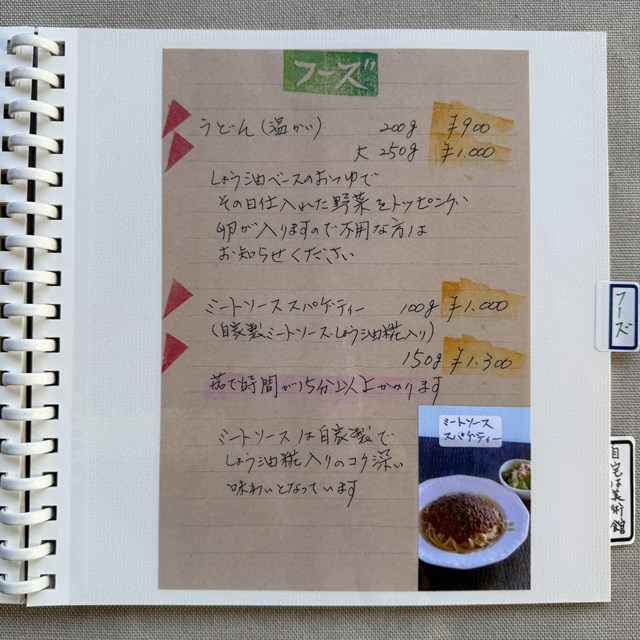 フーズ
うどん(温かい) 200g ¥900
大 250g ¥1.000
しょう油ベースのおつゆで
その日仕入れた野菜をトッピング、
卵が入りますので不用な方は
お知らせください
ミートソーススパゲティー 100g ¥1.000
(自家製ミートソース・しょう油糀入り)
150g ¥1.300
茹で時間が15分以上かかります
ミートソースは自家製で
しょう油糀入りのコク深い
味わいとなっています
ミートソース
スパゲティー
フーズ
自宅は美術館